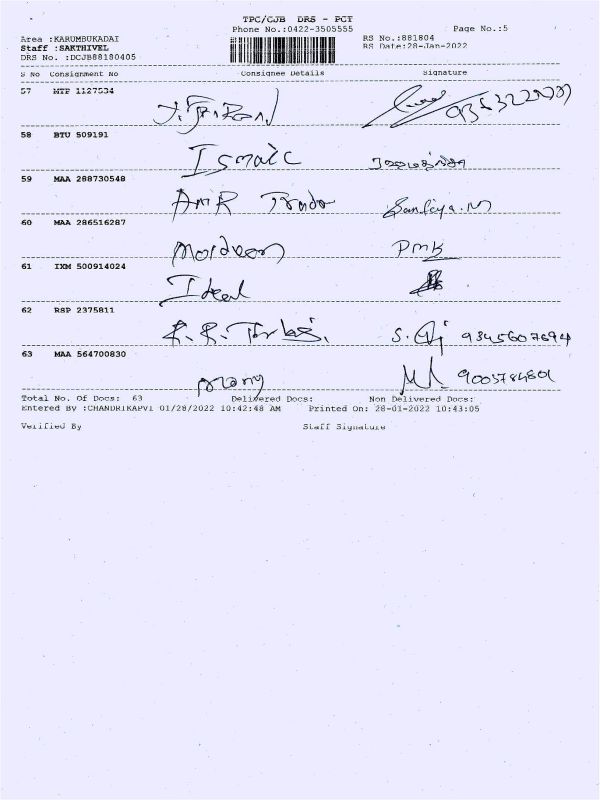 TPC/CJB DRS - PCT
Phone No.:0422-3505555 Page No.:5
Area :KARUMBUKADAI RS No.:881804
Staff :SAKTHIVEL RS Date:28-Jan-2022
DRS No. :DCJB88180405
S No Consignment No Consignee Details Signature
57 MTP 1127534
58 BTU 509191
Ismail
59 MAA 288730548
AmiR Sanfiya.M
60 MAA 286516287
PMK
61 IXM 500914024
Ideal
62 RSP 2375811
R.R. 9345607694
63 MAA 564700830
9003784801
Total No. Of Docs: 63 Delivered Docs: Non Delivered Docs:
Entered By :CHANDRIKAPVI 01/28/2022 10:42:48 AM Printed On: 28-01-2022 10:43:05
Verified By Staff Signature